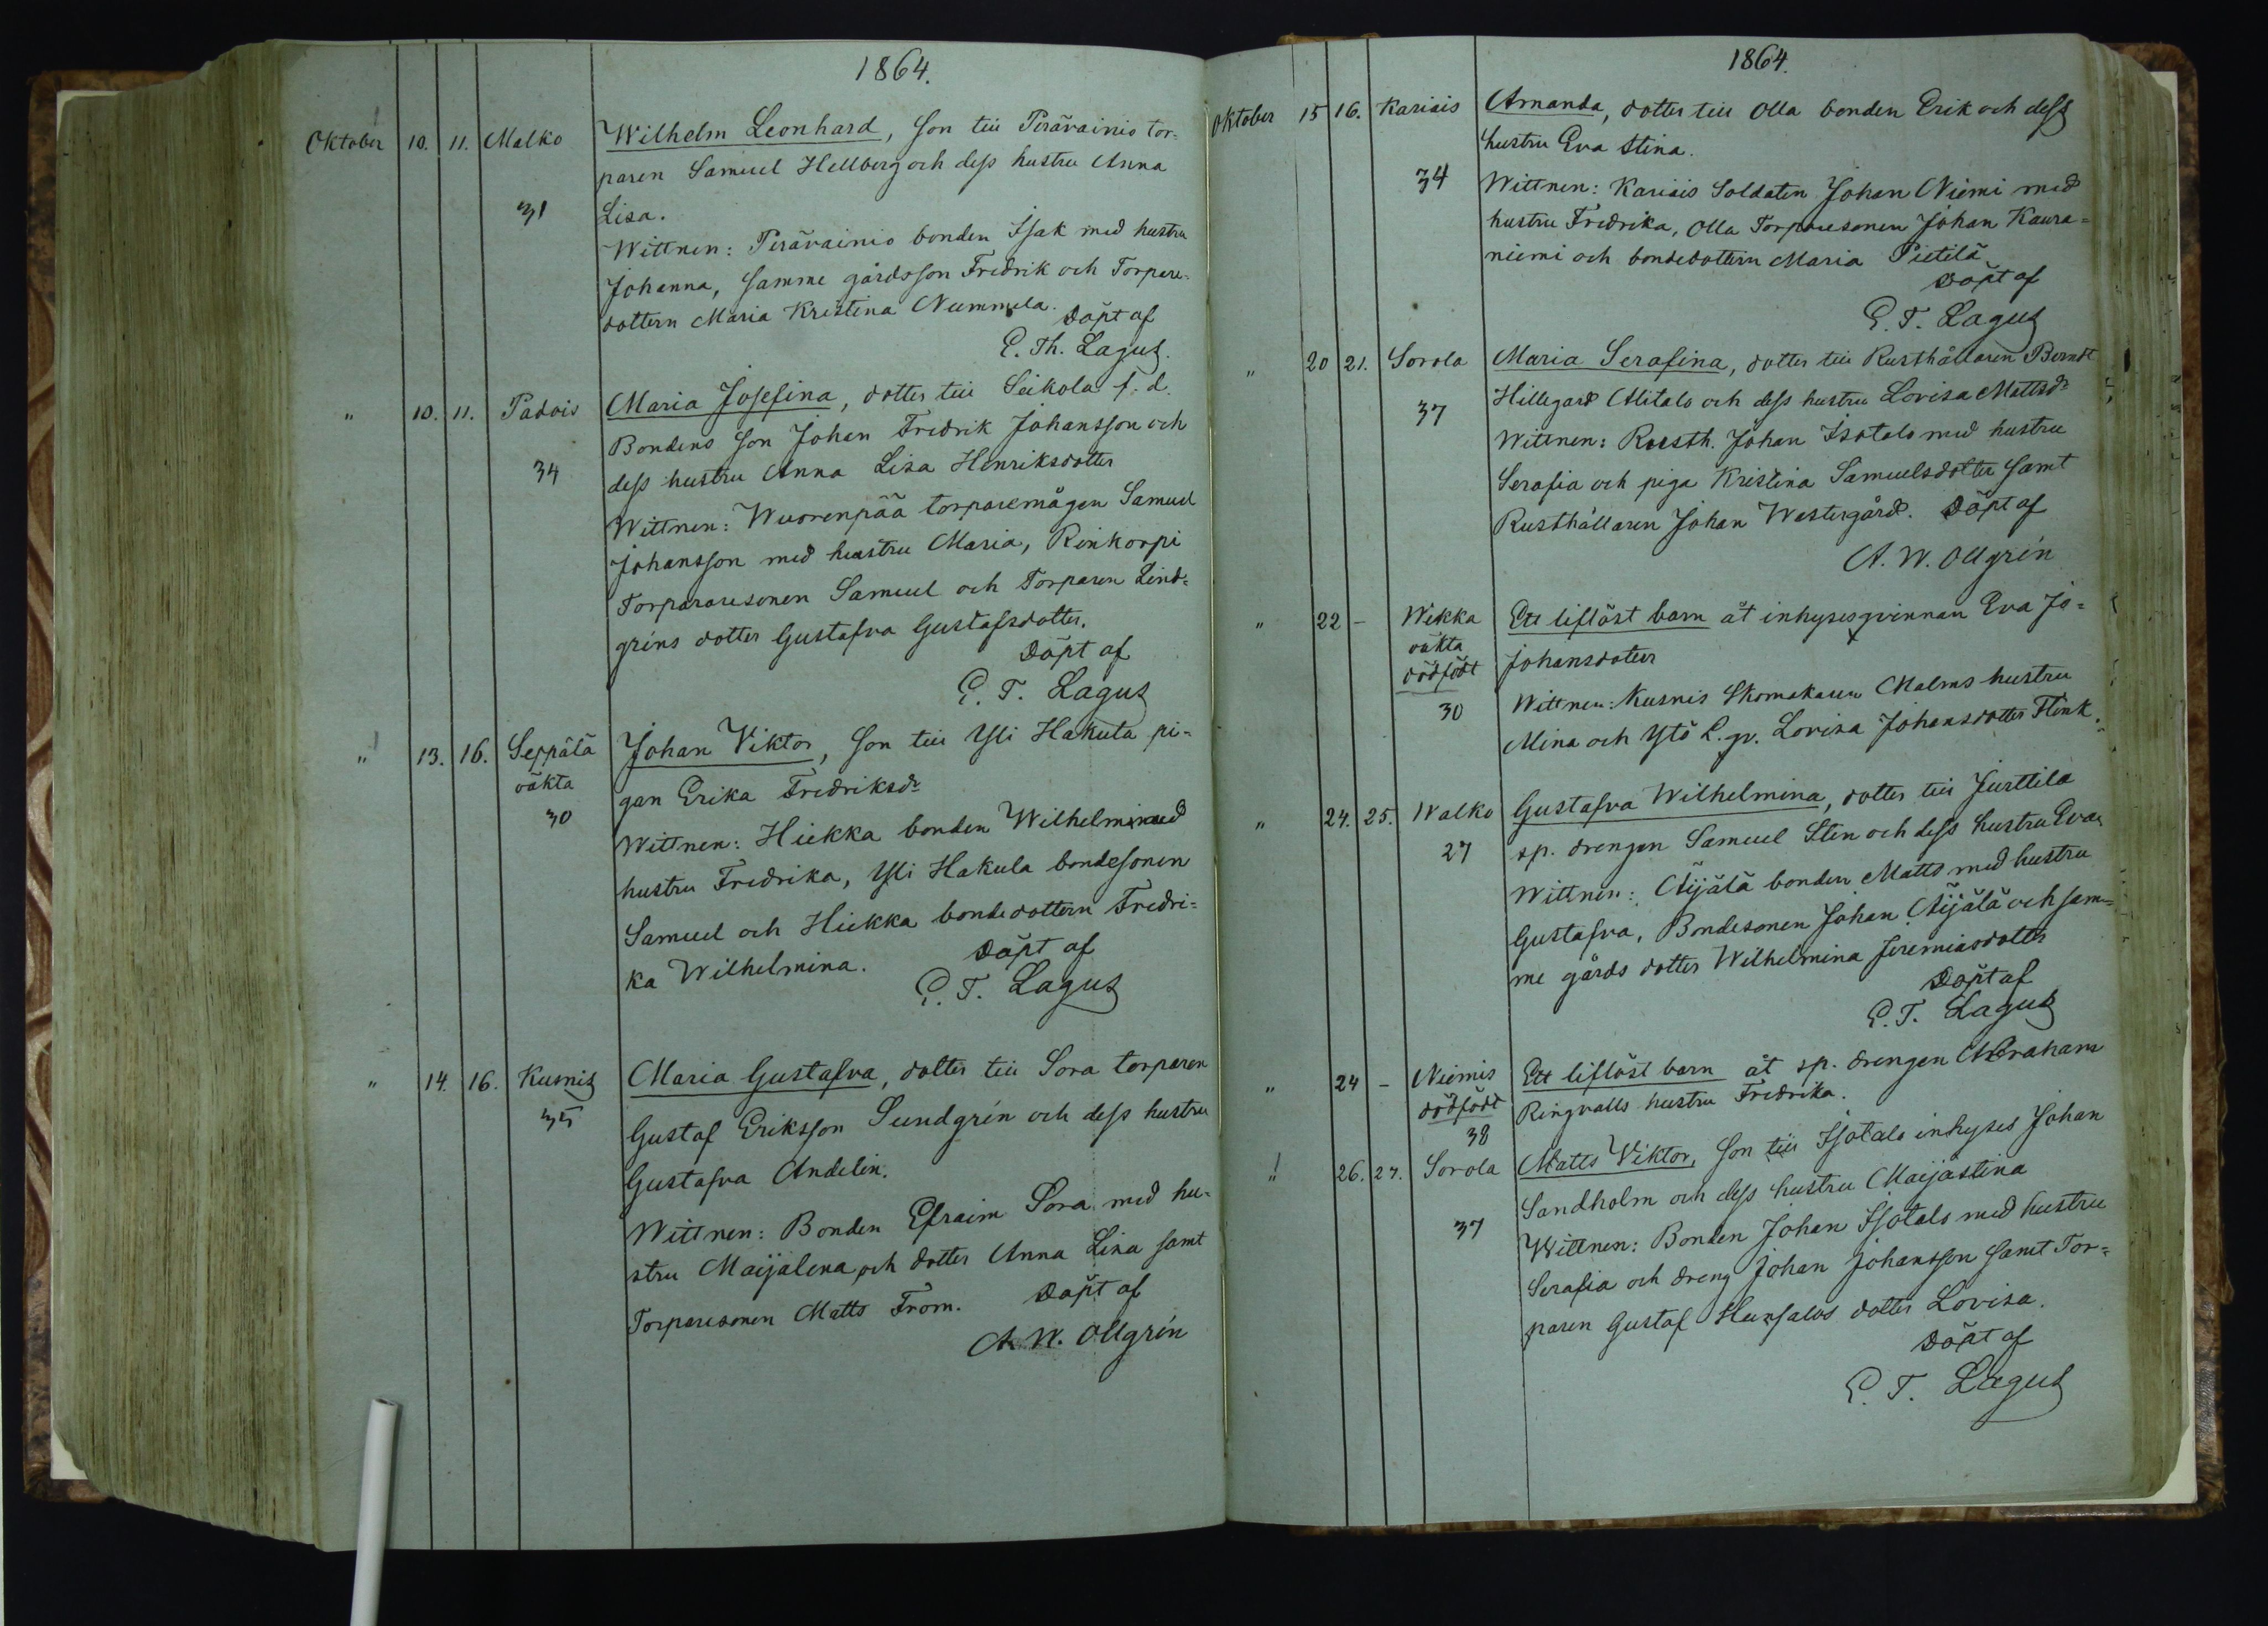 1864.
Oktober 10. 11. Malko Wilhelm Leonhard, son till Perävainio tor-
paren Samuel Hellberg och dess hustru Anna
31 Lisa.
Wittnen: Perävainio bonden Isak med hustru
Johanna, samme gårdsson Fredrik och Torpare-
dottern Maria Kristina Nummela.
Döpt af
E. Th. Lagus.
" 10. 11. Padois Maria Josefina, dotter till Seikola f. d.
Bondens son Johan Fredrik Johansson och
34 dess hustru Anna Lisa Henriksdotter
Wittnen: Wuorenpää torparemågen Samuel
Johansson med hustru Maria, Rinkorpi
Torpararesonen Samuel och Torparen Lind=
gréns dotter Gustafva Gustafsdotter.
Döpt af
E. T. Lagus
" 13. 16. Seppälä Johan Viktor, son till Yli Hakula pi=
oäkta gan Erika Fredriksdr
30 Wittnen: Hiekka bonden Wilhelm med
hustru Fredrika, Yli Hakula bondesonen
Samuel och Hiekka bondedottern Fredri=
ka Wilhelmina. Döpt af
E. T. Lagus
" 14. 16. Kusnis Maria Gustafva, dotter till Sora torparen
35 Gustaf Eriksson Sundgrén och dess hustru
Gustafva Andelin.
Wittnen: Bonden Efraim Sora med hu-
stru Maijalena, och dotter Anna Lisa samt
Torparesonen Matts From. Döpt af
A. W. Ollgrén
1864.
Oktober 15 16. Kariais Amanda, dotter till Olla bonden Erik och dess
hustru Eva Stina.
34 Wittnen: Kariais Soldaten Johan Niemi med
hustru Fredrika, Olla Torparesonen Johan Kaura=
niemi och bondedottern Maria Pietilä
Döpt af
E. T. Lagus
" 20 21. Sorola Maria Serafina, dotter till Rusthållaren Berndt
37 Hillegard Alitalo och dess hustru Lovisa Mattsdr
Wittnen: Rusth. Johan Isotalo med hustru
Serafia och piga Kristina Samuelsdotter samt
Rusthållaren Johan Westergård. Döpt af
A. W. Ollgrén
" 22 - Wekka Ett liflöst barn åt inhysesqvinnan Eva Jo=
oäkta
dödfödt Johansdotter
30 Wittnen: Kusnis Skomakaren Malms hustru
Mina och Ytö L. qv. Lovisa Johansdotter Flink.
" 24. 25. Walko Gustafva Wilhelmina, dotter till Jurttila
27 sp. drengen Samuel Sten och dess hustru Eva,
Wittnen: Äijälä bonden Matts med hustru
Gustafva, Bondesonen Johan Äijälä och sam=
me gårds dotter Wilhelmina Jeremiasdotter
Döpt af
E. T. Lagus
" 24 - Niemis Ett liflöst barn åt sp. drengen Abraham
dödfödt Ringvalls hustru Fredrika.
38
" 26. 27. Sorola Matts Viktor, son till Isotalo inhyses Johan
Sandholm och dess hustru Maijastina
37 Wittnen: Bonden Johan Isotalo med hustru
Serafia och dreng Johan Johansson samt Tor=
paren Gustaf dotter Lovisa.
Döpt af
E. T. Lagus